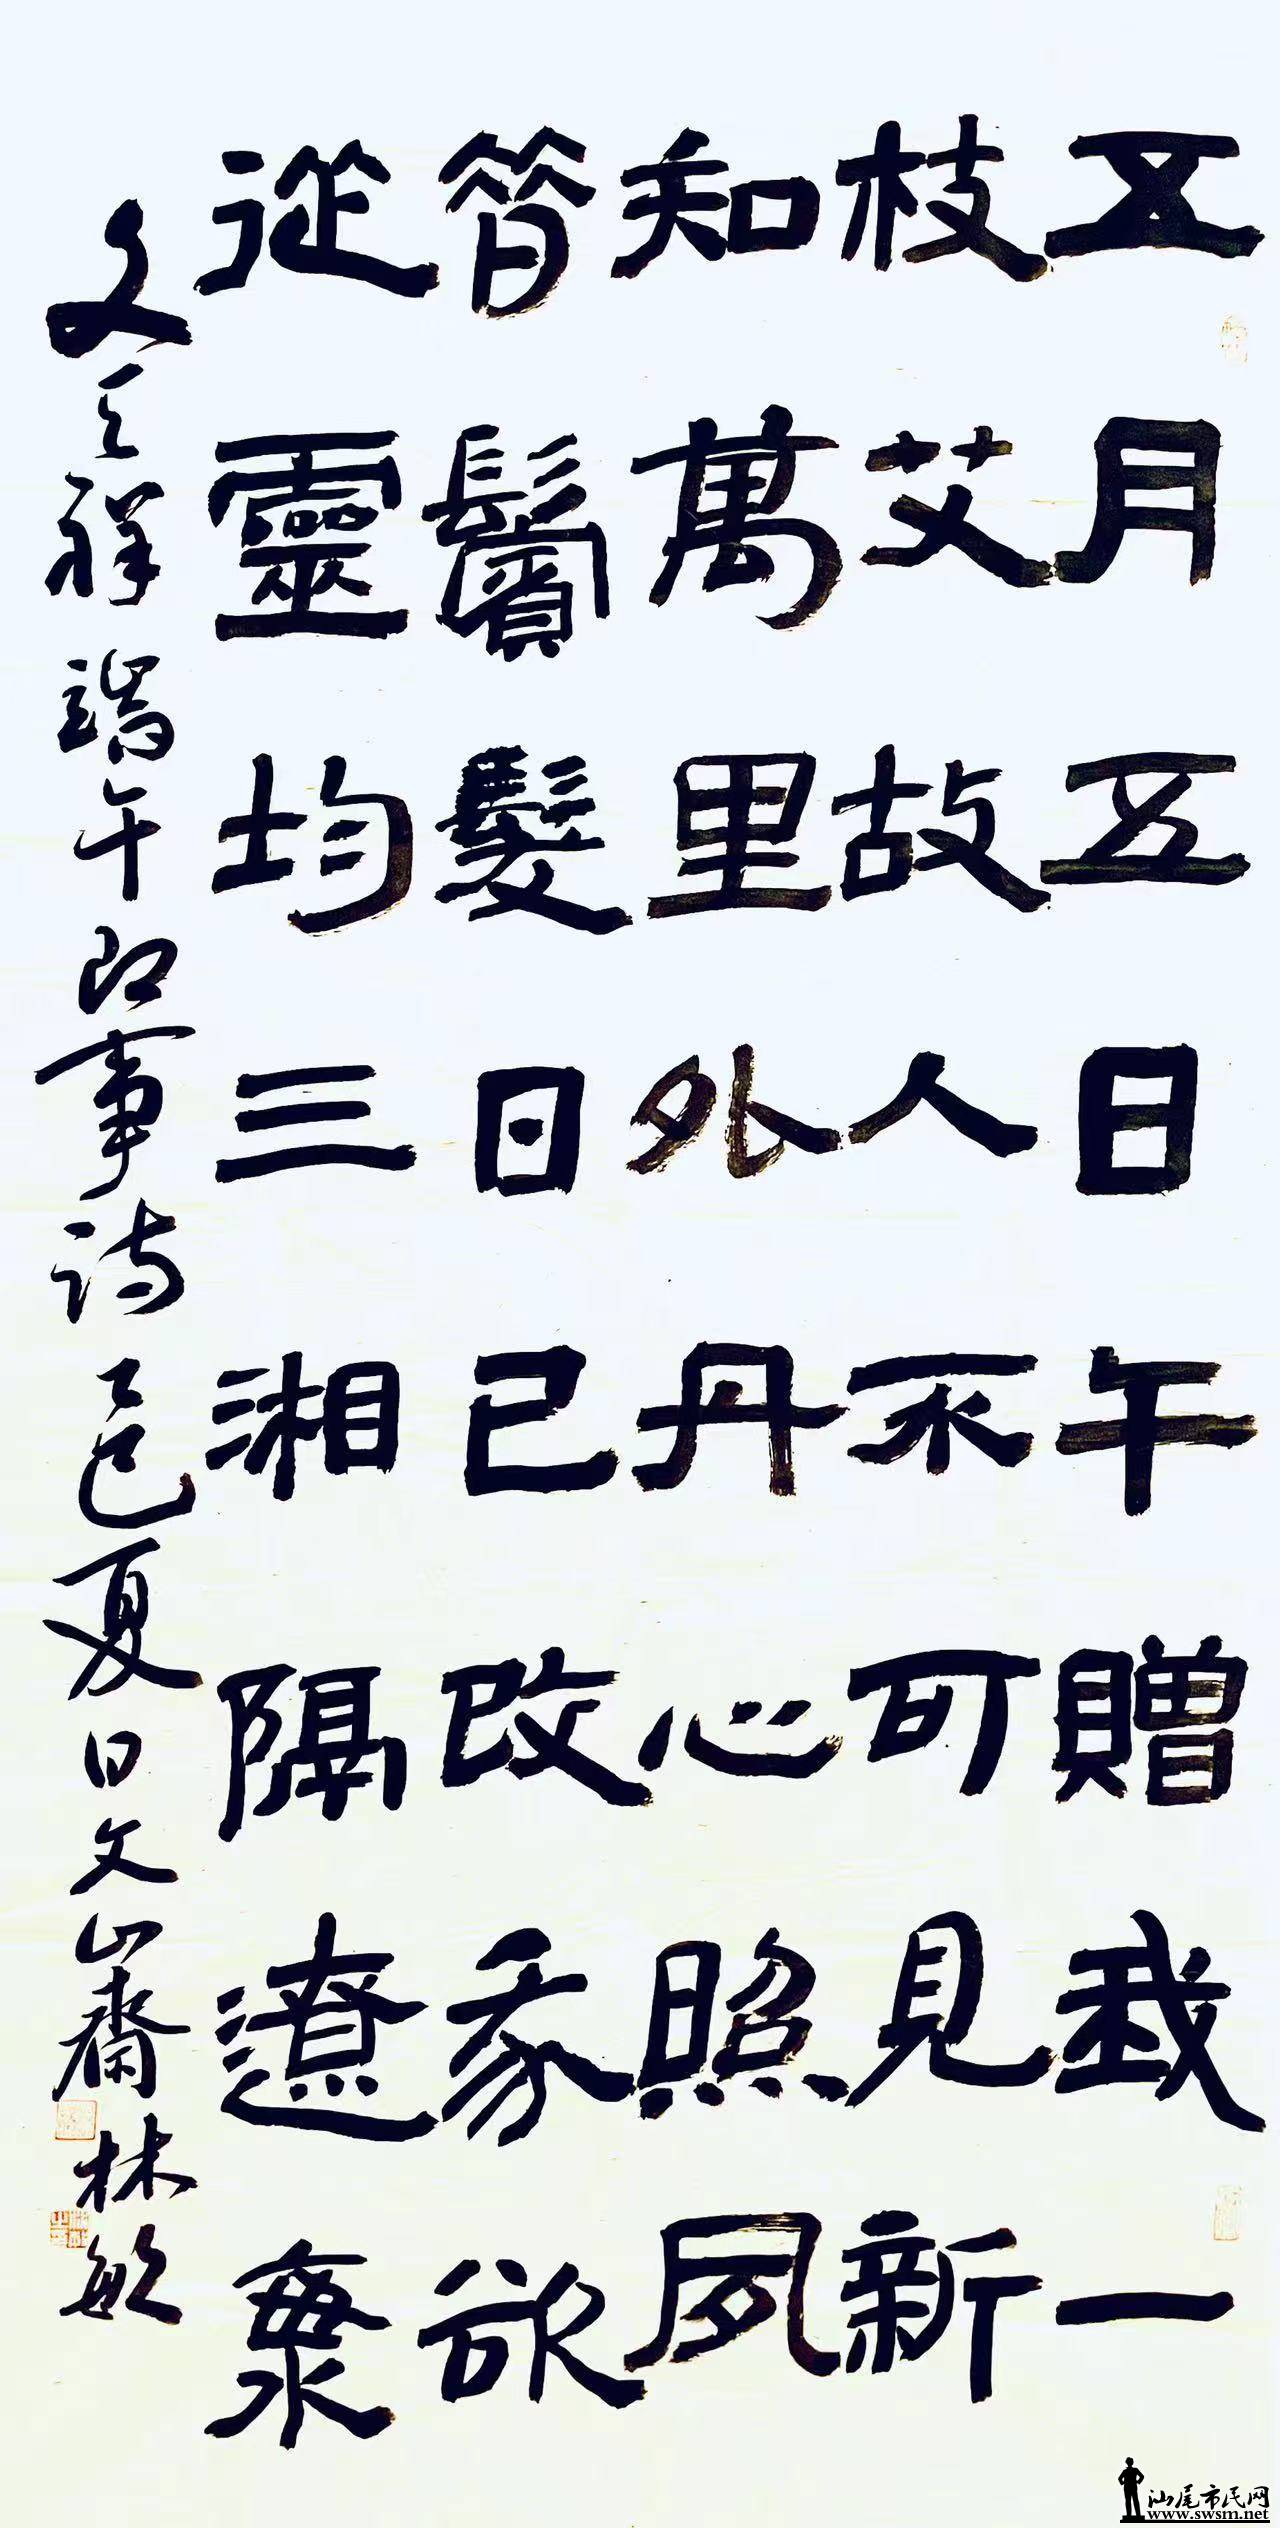 五月五日午贈我一
枝艾故人不可見新
知萬里外丹心照夙
昔鬢髮日已改我欲
從靈均三湘隔遼海
文天祥端午即事詩乙巳夏日文山齋林敏
汕尾市民网
www.swsm.net